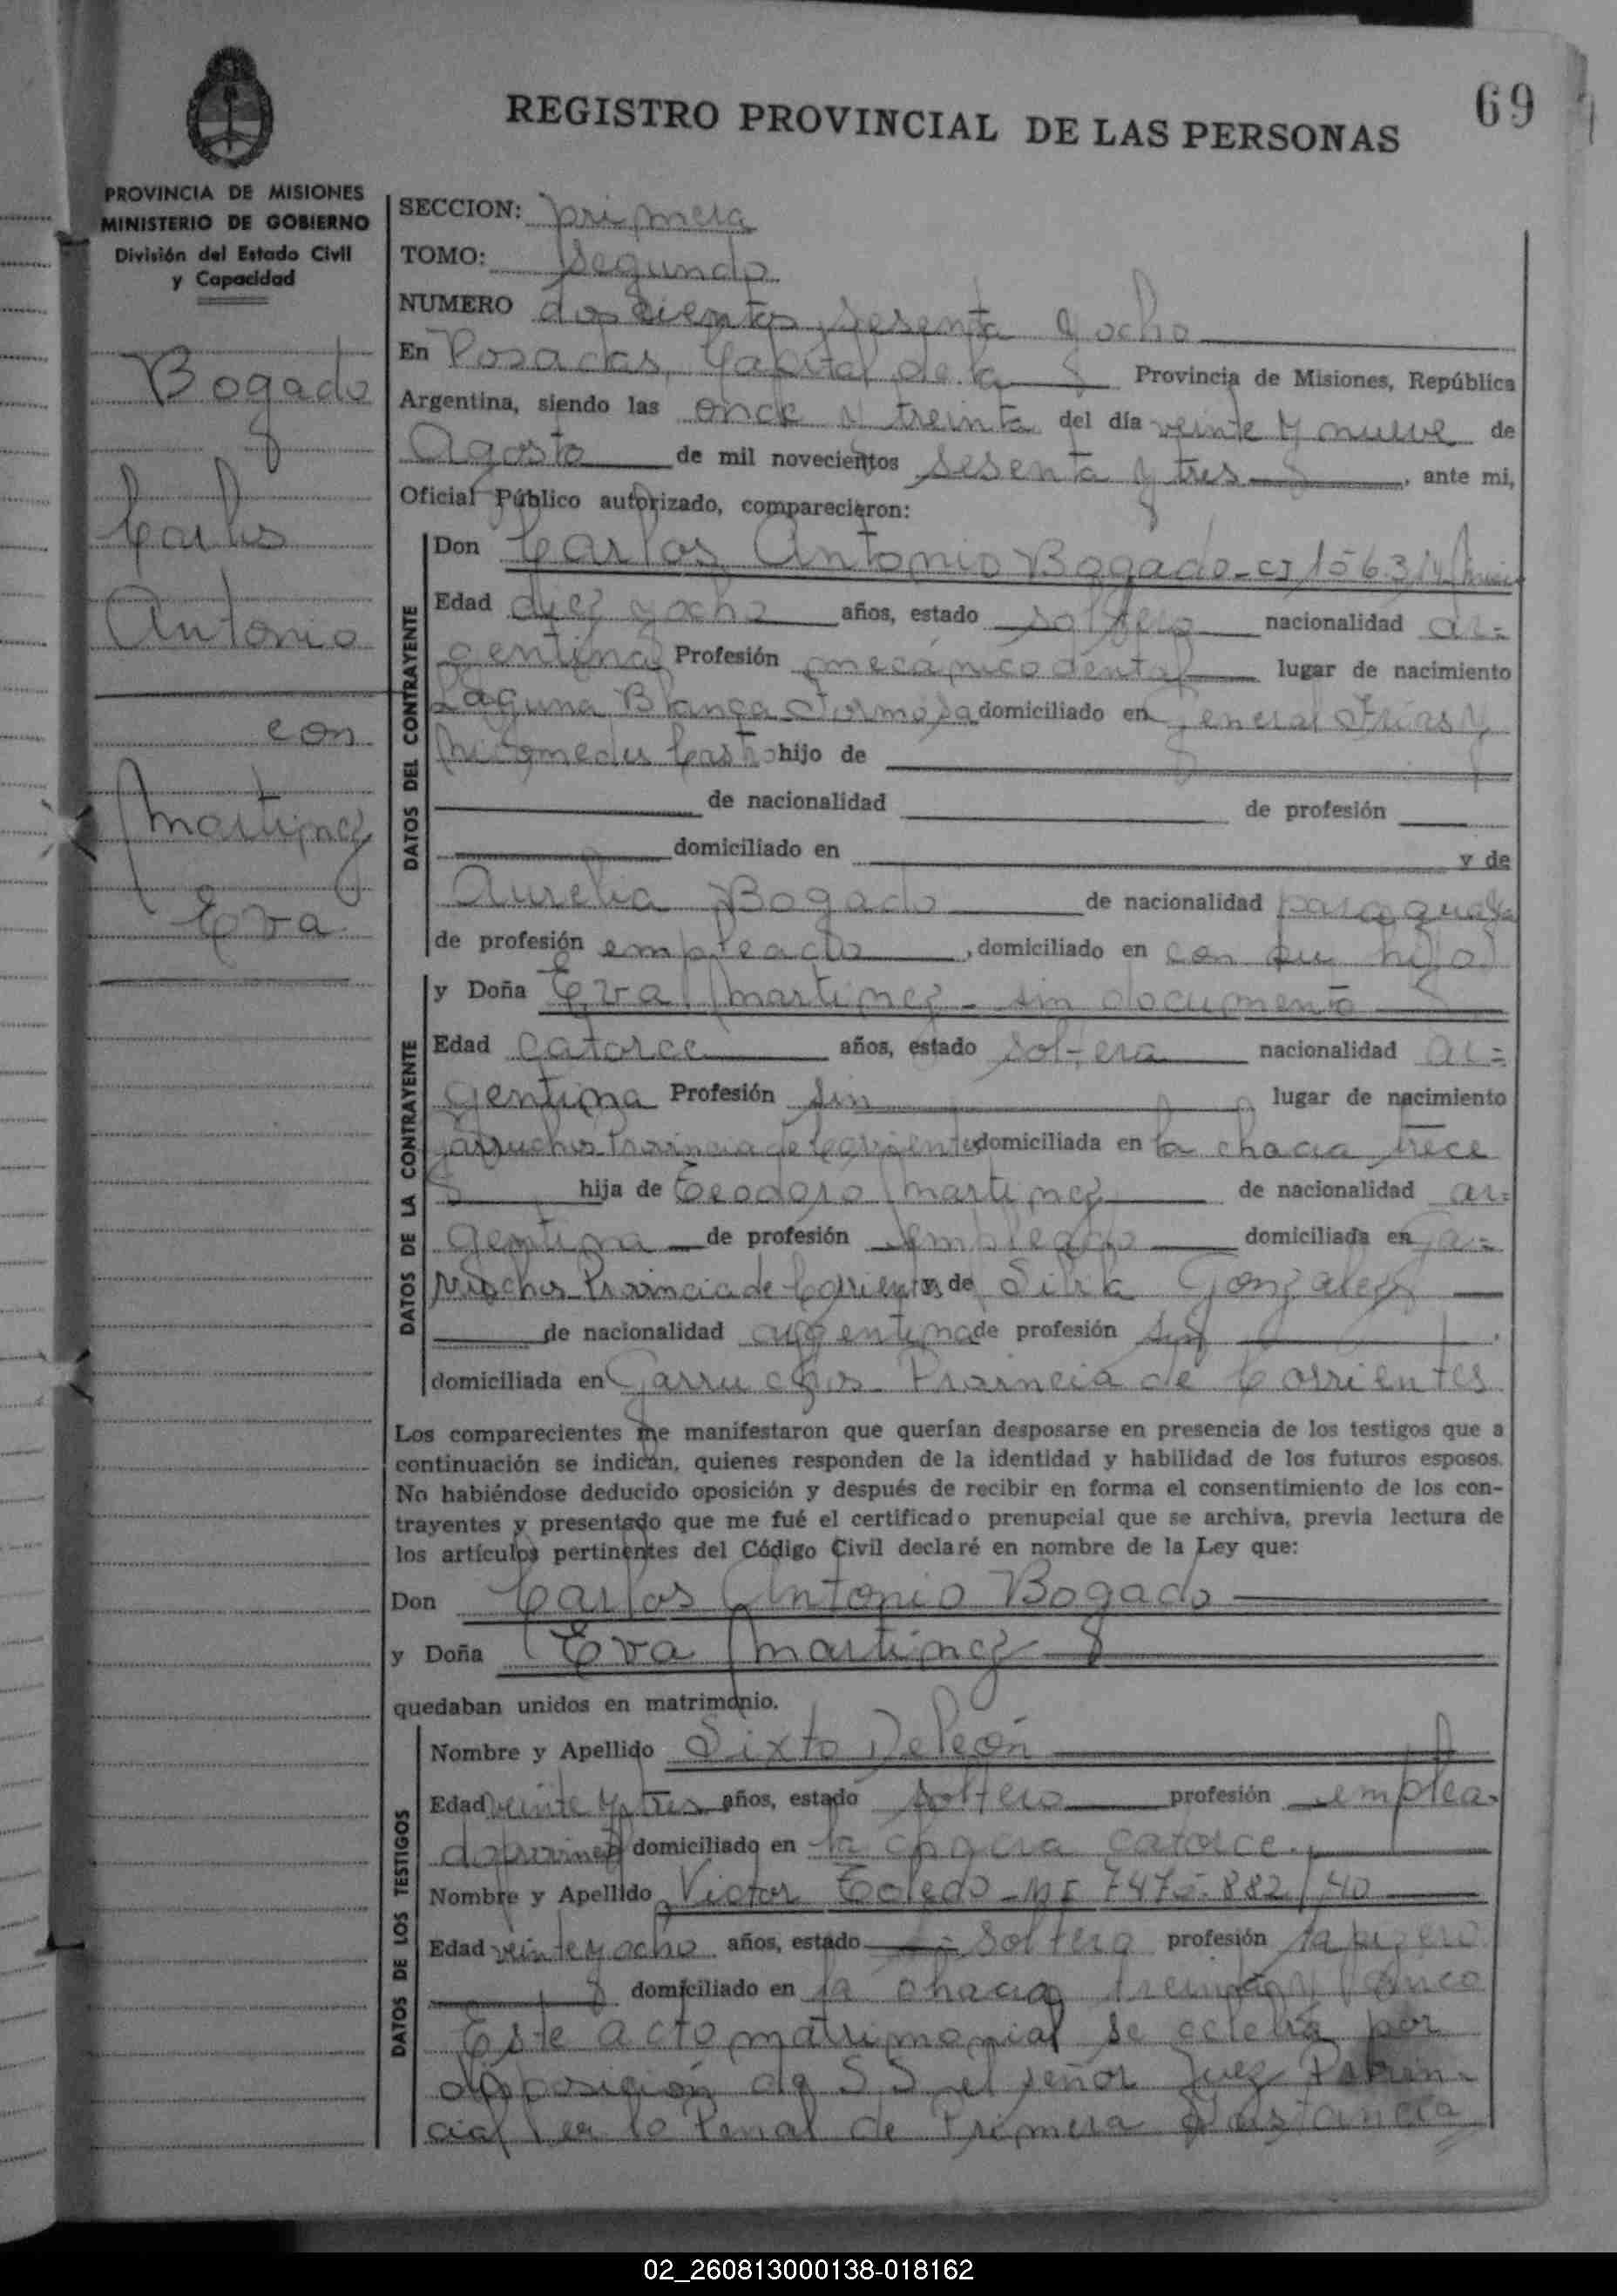 69
REGISTRO PROVINCIAL DE LAS PERSONAS
PROVINCIA DE MISIONES
MINISTERIO DE GOBIERNO
División del Estado Civil
y Capacidad
Bogado
Carlos
Antonio
con
Martinez
Eva
SECCION: primera
TOMO: segundo
NUMERO doscientos sesenta y ocho
En Posadas, Capital de la Provincia de Misiones, República
Argentina, siendo las once y treinta del día veinte y nueve de
Agosto de mil novecientos sesenta y tres, ante mi,
Oficial Público autorizado, comparecieron:
DATOS DEL CONTRAYENTE
Don Carlos Antonio Bogado - CI
Edad diez y ocho años, estado soltero nacionalidad ar-
gentina Profesión mecánico dental lugar de nacimiento
Laguna Blanca Formosa domiciliado en General Frias y
Castro hijo de
de nacionalidad de profesión
domiciliado en y de
Aurelia Bogado de nacionalidad paraguaya
de profesión empleada, domiciliado en con su hijo
DATOS DE LA CONTRAYENTE
y Doña Eva Martinez - sin documento
Edad catorce años, estado soltera nacionalidad ar=
gentina Profesión sin lugar de nacimiento
Garruchos Provincia de Corrientes domiciliada en la chacra trece
hija de Teodoro Martinez de nacionalidad ar=
gentina de profesión empleado domiciliada en Ga=
rruchos Provincia de Corrientes y de Gonzalez
de nacionalidad argentina de profesión sin
domiciliada en Garruchos Provincia de Corrientes
Los comparecientes me manifestaron que querían desposarse en presencia de los testigos que a
continuación se indican, quienes responden de la identidad y habilidad de los futuros esposos.
No habiéndose deducido oposición y después de recibir en forma el consentimiento de los con-
trayentes y presentado que me fué el certificado prenupcial que se archiva, previa lectura de
los artículos pertinentes del Código Civil declaré en nombre de la Ley que:
Don Carlos Antonio Bogado
y Doña Eva Martinez
quedaban unidos en matrimonio.
DATOS DE LOS TESTIGOS
Nombre y Apellido Sixto De León
Edad veinte y tres años, estado soltero profesión emplea-
do domiciliado en la chacra catorce.
Nombre y Apellido Victor Toledo - MI 7475.882/40
Edad veinte y ocho años, estado soltero profesión tapicero
domiciliado en la chacra treinta y cinco
Este acto matrimonial se celebra por
disposición de S.S. el señor Juez Provin-
cial en lo Penal de Primera Instancia
02_260813000138-018162